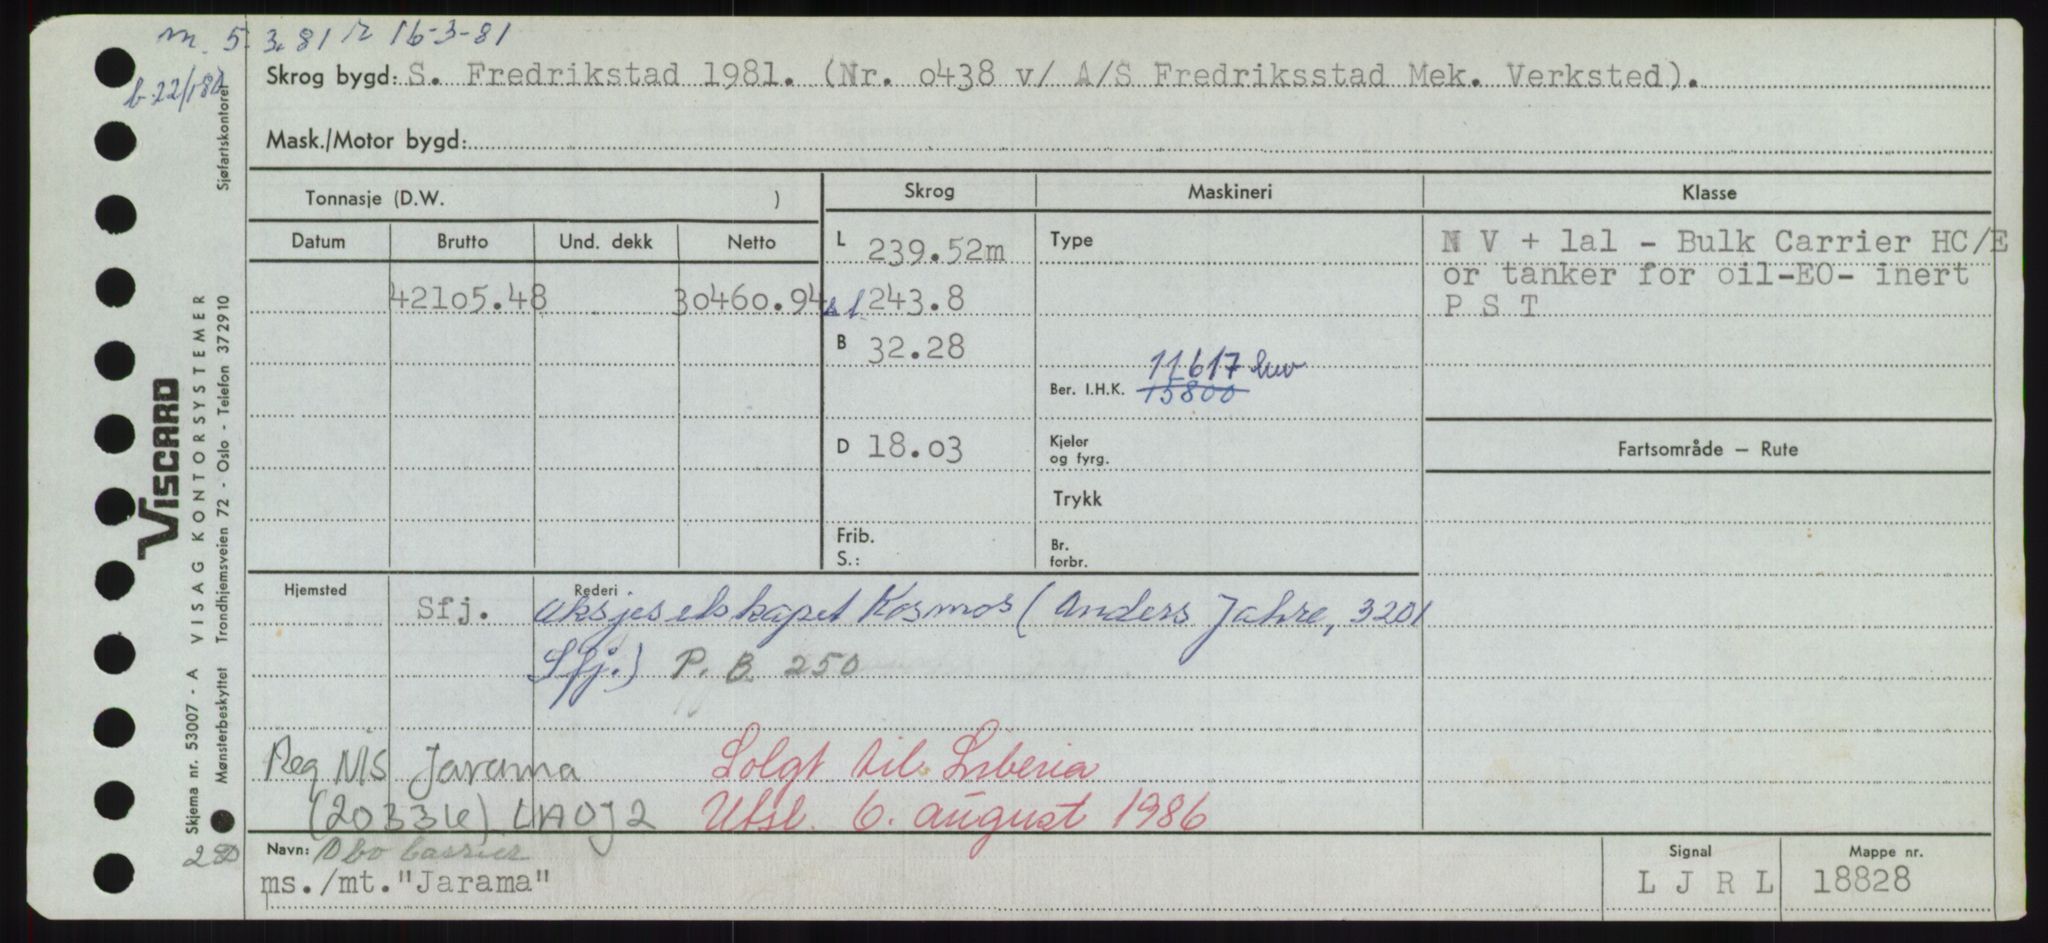 m. 5. 3. 81 r 16-3-81
Skrog bygd: S. Fredrikstad 1981. (Nr. o438 v/ A/S Fredriksstad Mek. Verksted).
Mask./Motor bygd:
Tonnasje (D.W. )
Skrog
Maskineri
Klasse
Datum
Brutto
Und. dekk
Netto
42105.48
30460.94
L 239.52m
243.8
B 32.28
D 18.03
Frib.
S.:
Type
Ber. I.H.K. 15800
11617
Kjeler
og fyrg.
Trykk
Br.
forbr.
N V + lal - Bulk Carrier HC/E
or tanker for oil-EO- inert
P S T
Fartsområde – Rute
Hjemsted
Sfj.
Rederi
Aksjeselskapet Kosmos (Anders Jahre, 3201
Sfj.) P. B 250
Reg NIS Jarama
Solgt til Liberia
LAOJ2
Utsl. 6. august 1986
Navn: Obo carrier
ms./mt."Jarama"
Signal
L J R L
Mappe nr.
18828
Sjøfartskontoret
VISCARD
VISAG KONTORSYSTEMER
Trondhjemsveien 72 - Oslo - Telefon 37 29 10
Skjema nr. 53007 - A
Mønsterbeskyttet